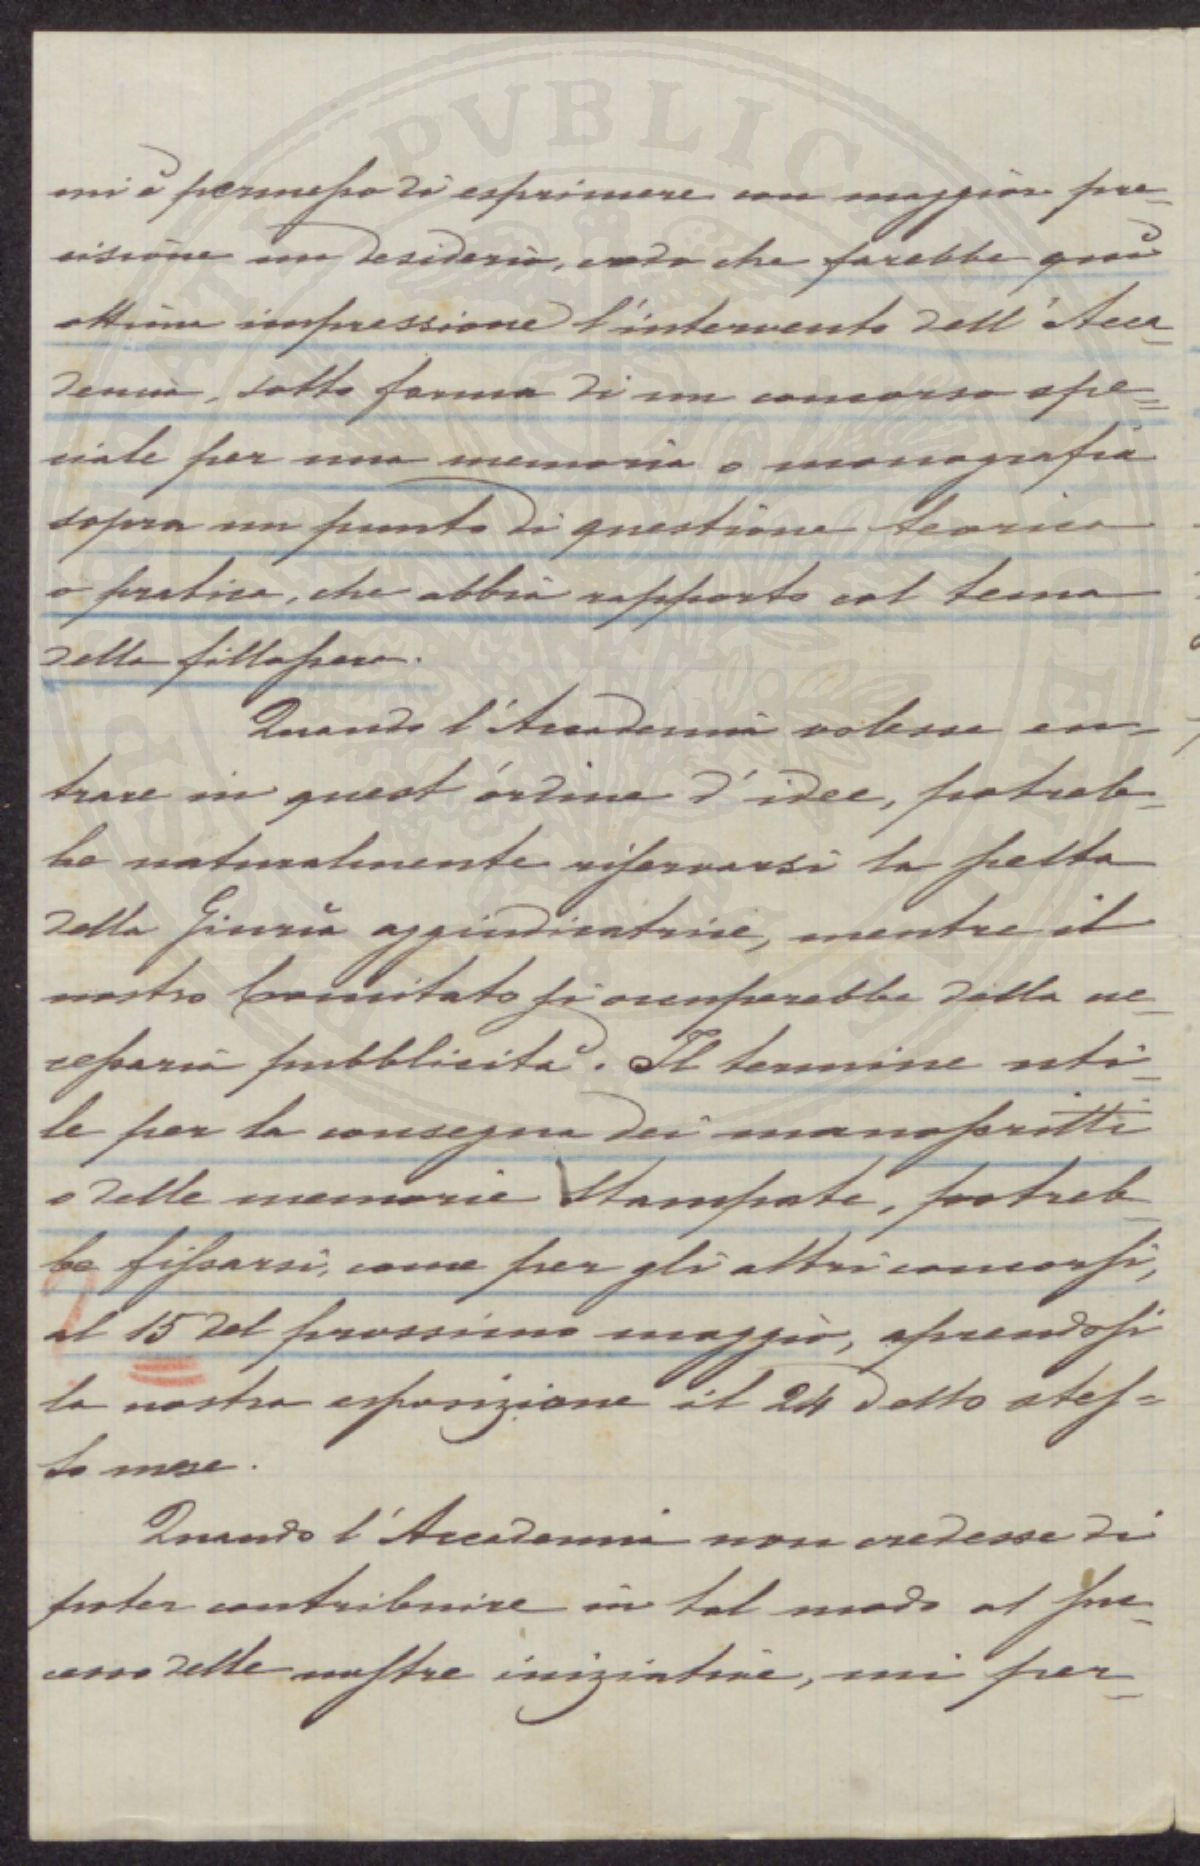 mi è permesso di esprimere con maggior pre-
cisione un desiderio, credo che farebbe quì
ottima impressione l'intervento dell'Acca-
demia, sotto forma di un concorso spe-
ciale per una memoria o monografia
sopra un punto di questione teorica
o pratica, che abbia rapporto col tema
della fillossera.
Quando l'Accademia volesse en-
trare in quest'ordine d'idee, potreb-
be naturalmente riservarsi la scelta
della Giurìa aggiudicatrice, mentre il
nostro Comitato si occuperebbe della ne-
cessaria pubblicità. Il termine uti-
le per la consegna dei manoscritti
o delle memorie stampate, potreb-
be fissarsi, come per gli altri concorsi,
al 15 del prossimo maggio, aprendosi
la nostra esposizione il 24 dello stes-
so mese.
Quando l'Accademia non credesse di
poter contribuire in tal modo al suc-
cesso delle nostre iniziative, mi per-